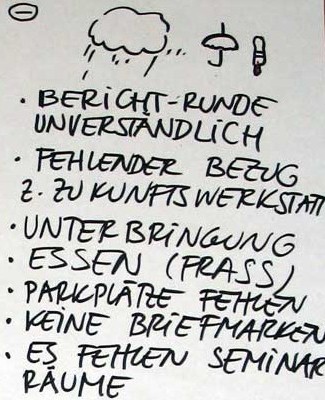 • BERICHT-RUNDE
UNVERSTÄNDLICH
• FEHLENDER BEZUG
Z. ZUKUNFTSWERKSTATT
• UNTERBRINGUNG
• ESSEN (FRASS)
• PARKPLÄTZE FEHLEN
• KEINE BRIEFMARKEN
• ES FEHLEN SEMINAR
RÄUME